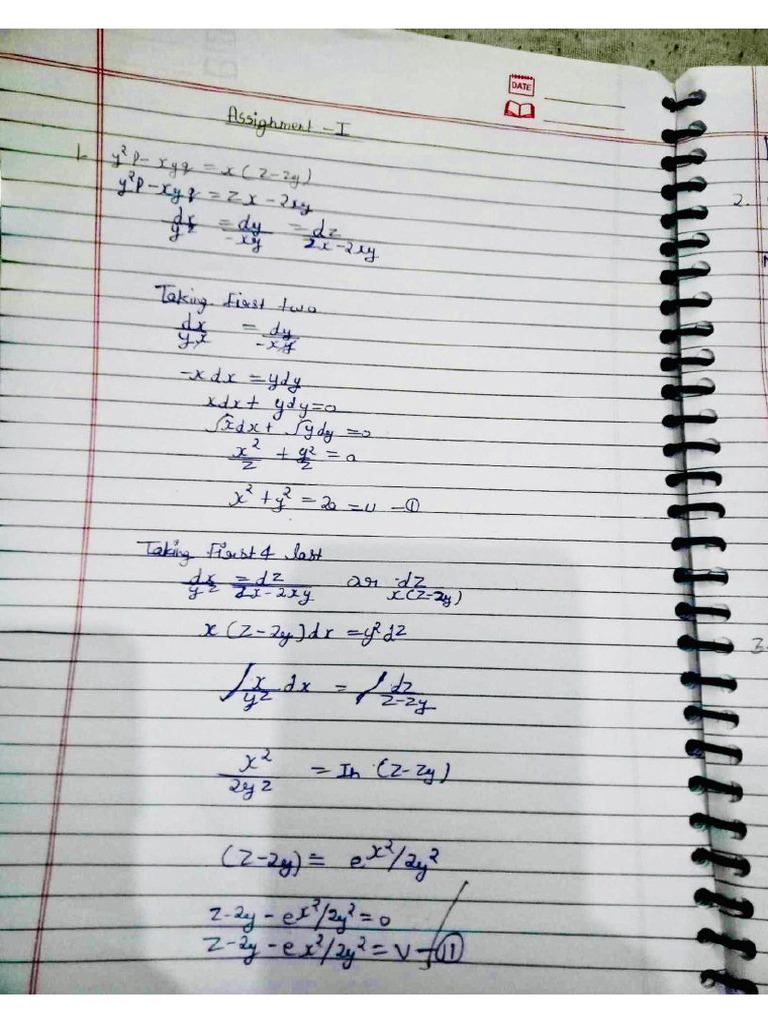 DATE
Assignment - I
1. y²p - xyq = x(z-2y)
y²p - xyq = zx - 2xy
dx/y² = dy/-xy = dz/zx-2xy
Taking first two
dx/y² = dy/-xy
-xdx = ydy
xdx + ydy = 0
∫xdx + ∫ydy = 0
x²/2 + y²/2 = a
x² + y² = 2a = u - ①
Taking first & last
dx/y² = dz/zx-2xy or dz/x(z-2y)
x(z-2y)dx = y²dz
∫x/y² dx = ∫dz/z-2y
x²/2y² = In (z-2y)
(z-2y) = e^x²/2y²
z-2y - e^x²/2y² = 0
z-2y - e^x²/2y² = v - ⑪
2.